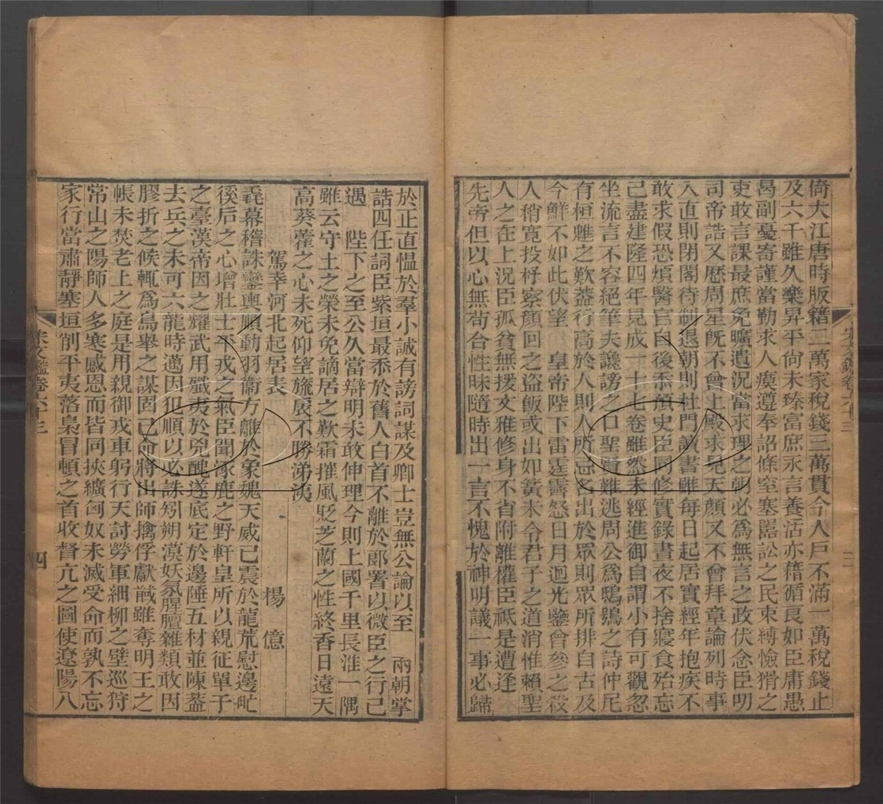 倚大江唐時版籍二萬家稅錢三萬貫今人戶不滿一萬稅錢止
及六千雖久樂昇平尚未臻富庶永言養活亦藉循良如臣庸愚
曷副憂寄謹當勤求人瘼遵奉詔條窒塞嚚訟之民束縛憸猾之
吏敢言課最庶免曠遺況當求理之朝必為無言之政伏念臣明
司帝誥又歷周星旣不曾上殿求見天顏又不曾拜章論列時事
入直則閉閣待制退朝則杜門讀書雖每日起居實經年抱疾不
敢求假恐煩醫官自後忝預史臣同修實錄晝夜不捨寢食殆忘
己盡建隆四年見成一十七卷雖然未經進御自謂小有可觀忽
坐流言不容絕筆夫讒謗之口聖賢難逃周公為鴟鴞之詩仲尼
有桓魋之歎蓋行高於人則人所忌名出於眾則眾所排自古及
今鮮不如此伏望 皇帝陛下雷霆霽怒日月迴光鑒曾參之殺
人稍寬投杼察顏回之盜飯或出如簧未令君子之道消惟賴聖
人之在上況臣孤貧無援文雅修身不省附離權臣祇是遭逢
先帝但以心無苟合性昧隨時出一言不愧於神明議一事必歸
宋文鑑卷六十三
三
於正直慍於羣小誠有謗詞謀及卿士豈無公論以至 兩朝掌
誥四任詞臣紫垣最忝於舊人白首不離於郞署以微臣之行己
遇 陛下之至公久當辯明未敢伸理今則上國千里長淮一隅
雖云守土之榮未免謫居之歎霜摧風貶芝蘭之性終香日遠天
高葵藿之心未死仰望旒扆不勝涕洟
駕幸河北起居表 楊億
毳幕稽誅鑾輿順動羽衞方離於象魏天威已震於龍荒慰邊甿
徯后之心增壯士平戎之氣臣聞涿鹿之野軒皇所以親征單子
之臺漢帝因之耀武用殲夷於兇醜遂底定於邊陲五材並陳蓋
去兵之未可六龍時邁因犯順以必誅矧朔漠妖氛腥膻雜類敢因
膠折之候輒為鳥舉之謀固已命將出師擒俘獻馘雖奪明王之
帳未焚老上之庭是用親御戎車躬行天討勞軍細柳之壁巡狩
常山之陽師人多寒感恩而皆同挾纊匈奴未滅受命而孰不忘
家行當肅靜塞垣削平夷落梟冒頓之首收督亢之圖使遼陽八
宋文鑑卷六十三
四